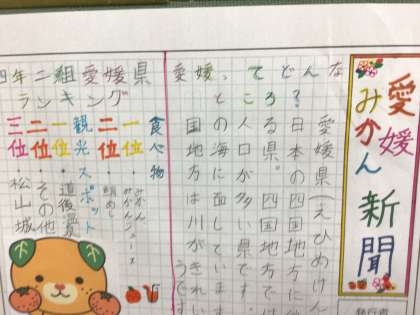 愛媛
みかん
新聞
愛媛、てどんな
ところ？
愛媛県(えひめけん
日本の四国地方に
る県。四国地方では
人口が多い県です。
の海に面しています
国地方は川がきれい
うです
四年二組愛媛県
ランキング
食べ物
一位・みかん
みかんジュース
二位・鯛めし
観光スポット
一位・道後温泉
二位・その他
三位 松山城
発行者